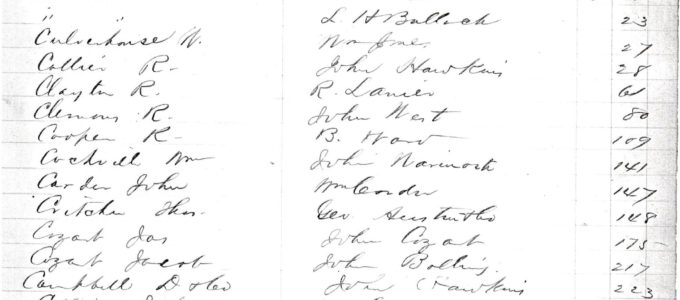 " " L. H Bullock 23
Culverhouse W. Wm Jones 27
Collier R- John Hawkins 28
Clayton R. R. Lanier 61
Clemons R. John West 80
Cooper R- B. Ward 109
Cockrill Wm John Warinock 141
Carder John Wm Corder 147
Critcher Thos. Geo 148
Cozart Jas John Cozart 175
Cozart Jacob John Bolling 217
Campbell D & Co John Hawkins 223